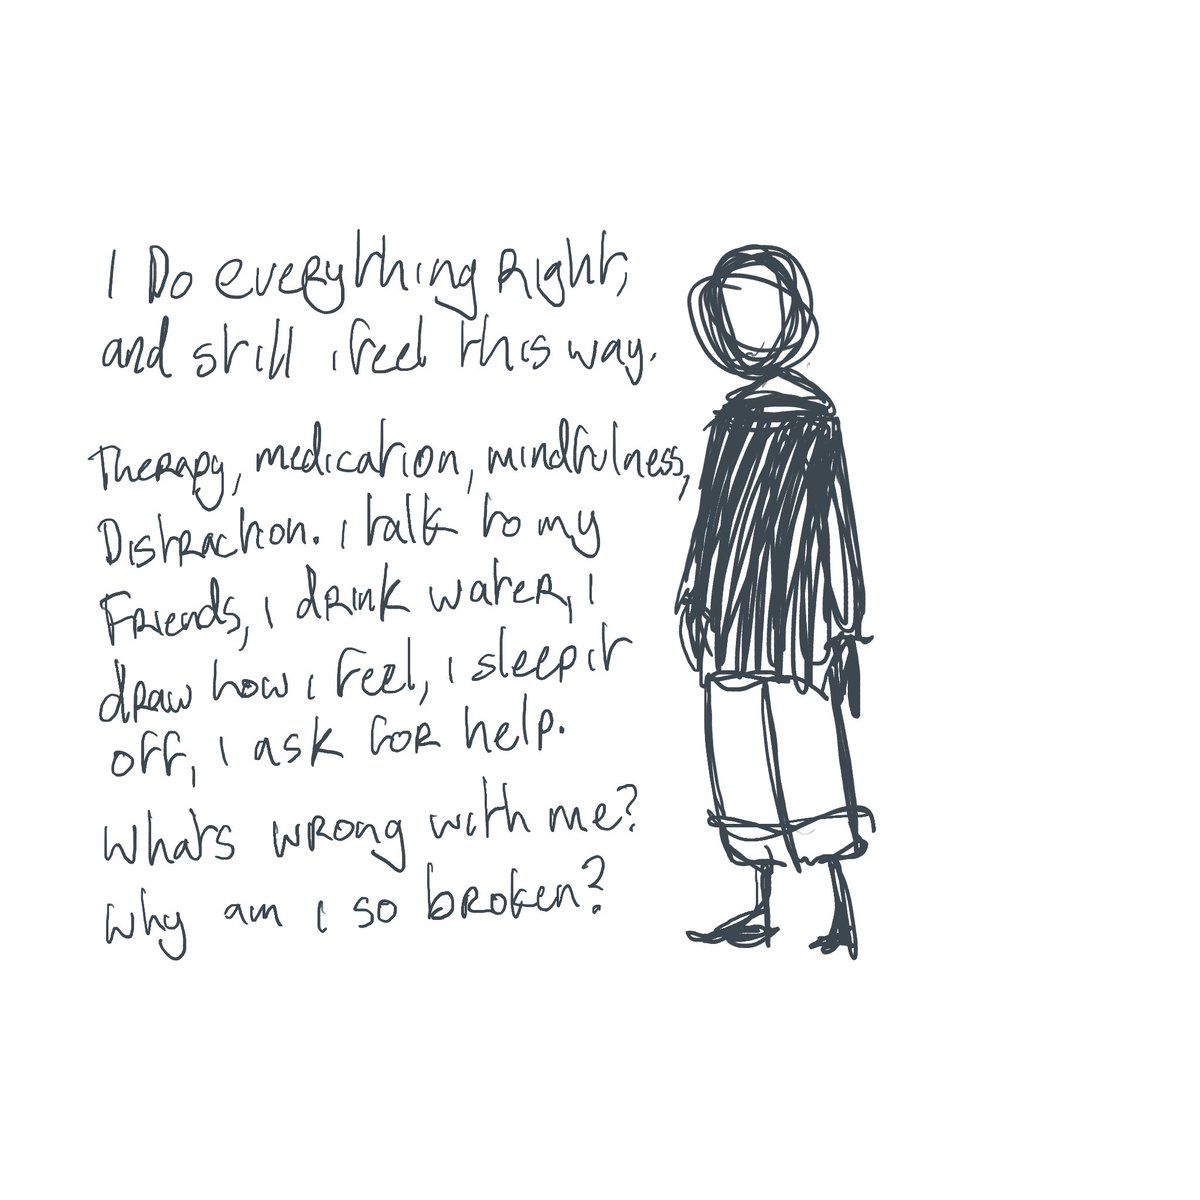 I Do everything Right,
and still i feel this way.
Therapy, medication, mindfulness,
Distraction. i talk to my
Friends, i drink water, i
draw how i feel, i sleep it
off, i ask for help.
Whats wrong with me?
Why am i so broken?